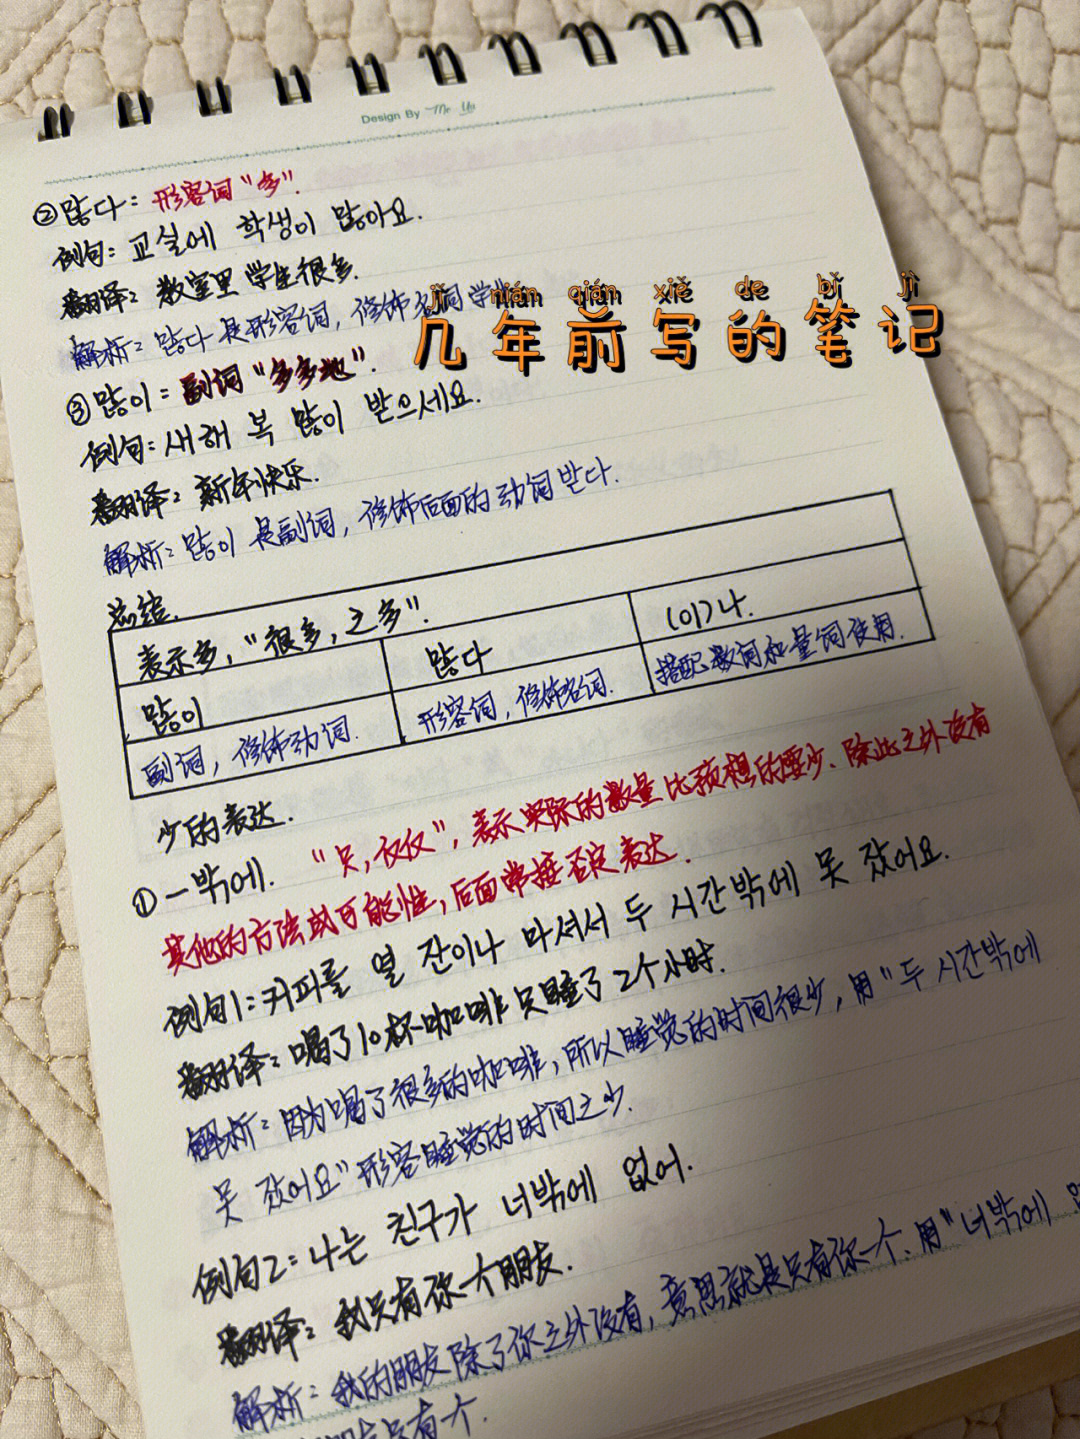 Design By Mr Yu
②많다: 形容词"多".
例句: 교실에 학생이 많아요.
翻译: 教室里学生很多.
解析: 많다是形容词, 修饰名词学
jǐ nián qián xiě de bǐ jì
几年前写的笔记
③많이: 副词"多多地".
例句: 새해 복 많이 받으세요.
翻译: 新年快乐.
解析: 많이 是副词, 修饰后面的动词받다.
总结.
表示多, "很多, 之多".
많이 많다 (이)나.
副词, 修饰动词. 形容词, 修饰名词. 搭配数词和量词使用.
少的表达.
①一밖에. "只, 仅仅", 表示实际的数量比预想的要少. 除此之外没有
其他的方法或可能性, 后面常接否定表达.
例句1: 커피를 열 잔이나 마셔서 두 시간밖에 못 잤어요.
翻译: 喝了10杯咖啡只睡了2个小时.
解析: 因为喝了很多的咖啡, 所以睡觉的时间很少, 用"두 시간밖에
못 잤어요"形容睡觉的时间之少.
例句2: 나는 친구가 너밖에 없어.
翻译: 我只有你一个朋友.
解析: 我的朋友除了你之外没有, 意思就是只有你一个. 用"너밖에
只有一个.